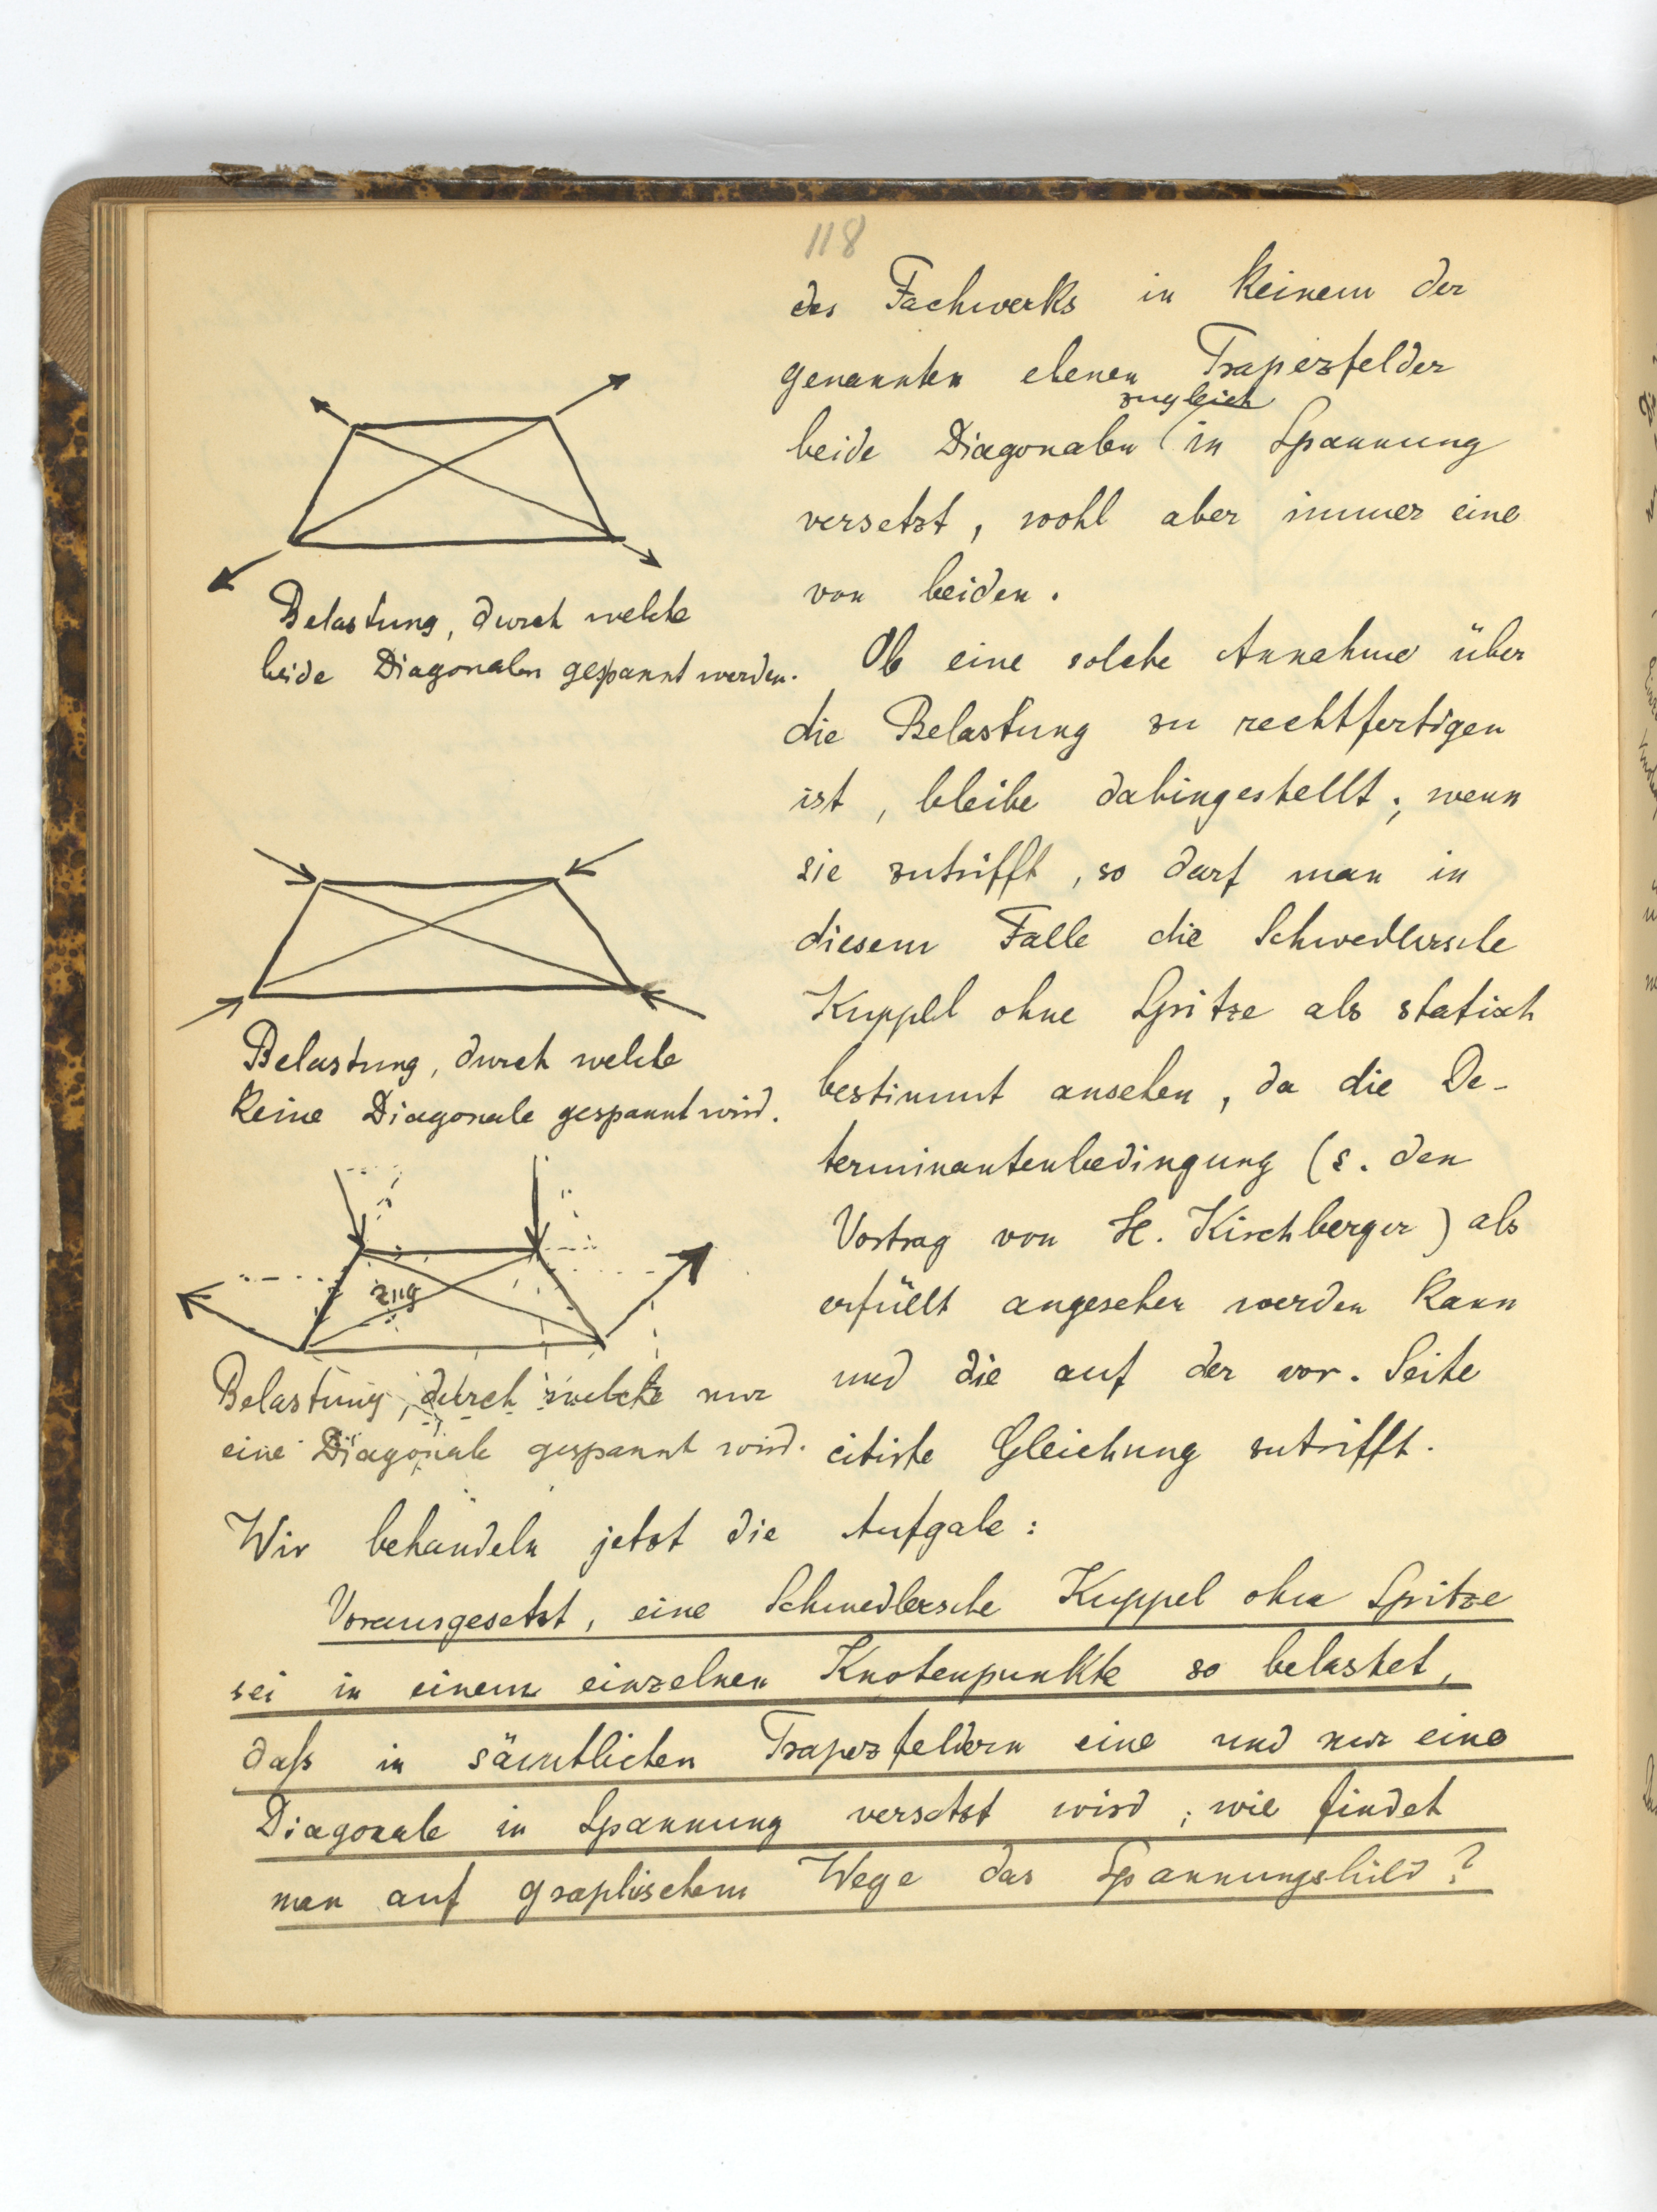 118
des Fachwerks in keinem der
genannten ebenen Trapezfelder
zugleich
beide Diagonalen in Spannung
versetzt, wohl aber immer eine
von beiden.
Ob eine solche Annahme über
die Belastung zu rechtfertigen
ist, bleibe dahingestellt; wenn
sie zutrifft, so darf man in
diesem Falle die Schwedlersche
Kuppel ohne Spitze als statisch
bestimmt ansehen, da die De-
terminantenbedingung (s. den
Vortrag von H. Kirchberger) als
erfüllt angesehen werden kann
und die auf der vor. Seite
citirte Gleichung zutrifft.
Belastung, durch welche
beide Diagonalen gespannt werden.
Belastung, durch welche
keine Diagonale gespannt wird.
zug
Belastung, durch welche nur
eine Diagonale gespannt wird.
Wir behandeln jetzt die Aufgabe:
Vorausgesetzt, eine Schwedlersche Kuppel ohne Spitze
sei in einem einzelnen Knotenpunkte so belastet,
daß in sämtlichen Trapezfeldern eine und nur eine
Diagonale in Spannung versetzt wird; wie findet
man auf graphischem Wege das Spannungsbild?